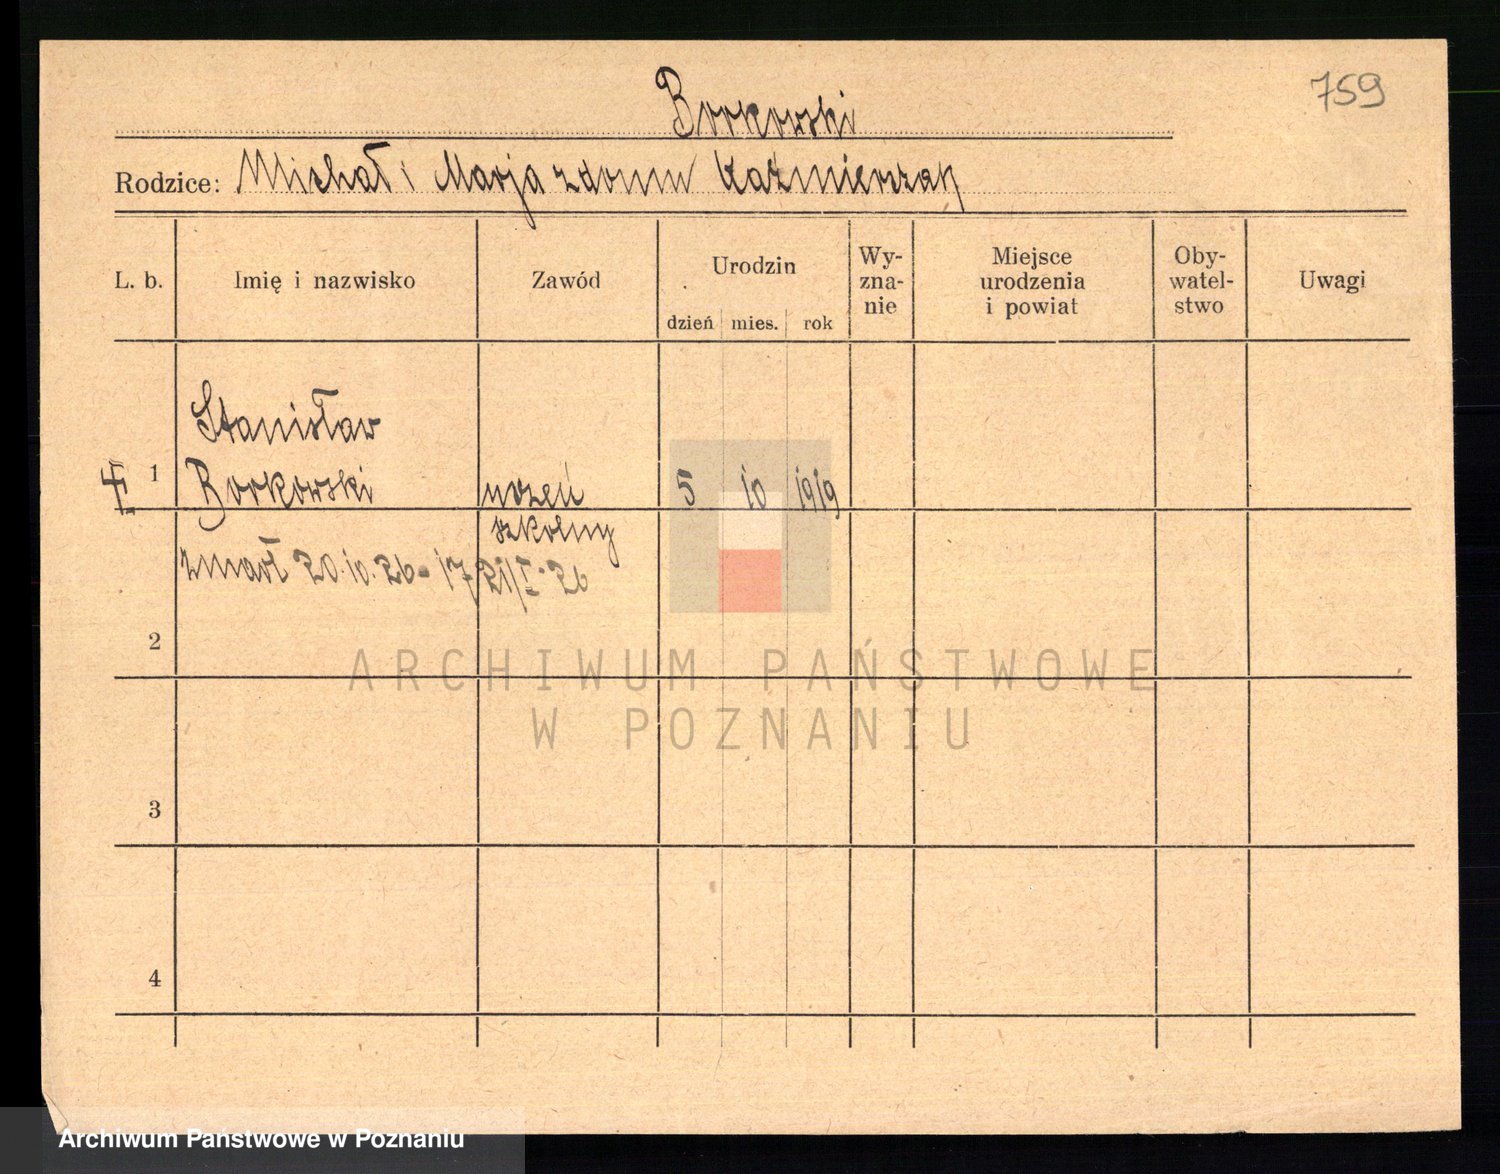 759
Borkowski
Rodzice: Michał i Marja z domu Kaźmierzak
L. b.
Imię i nazwisko
Zawód
Urodzin
dzień mies. rok
Wy-
zna-
nie
Miejsce
urodzenia
i powiat
Oby-
watel-
stwo
Uwagi
Stanisław
1 Borkowski uczeń 5 10 1919
szkolny
zmarł 20.10.26
2
3
4
ARCHIWUM PAŃSTWOWE
W POZNANIU
Archiwum Państwowe w Poznaniu